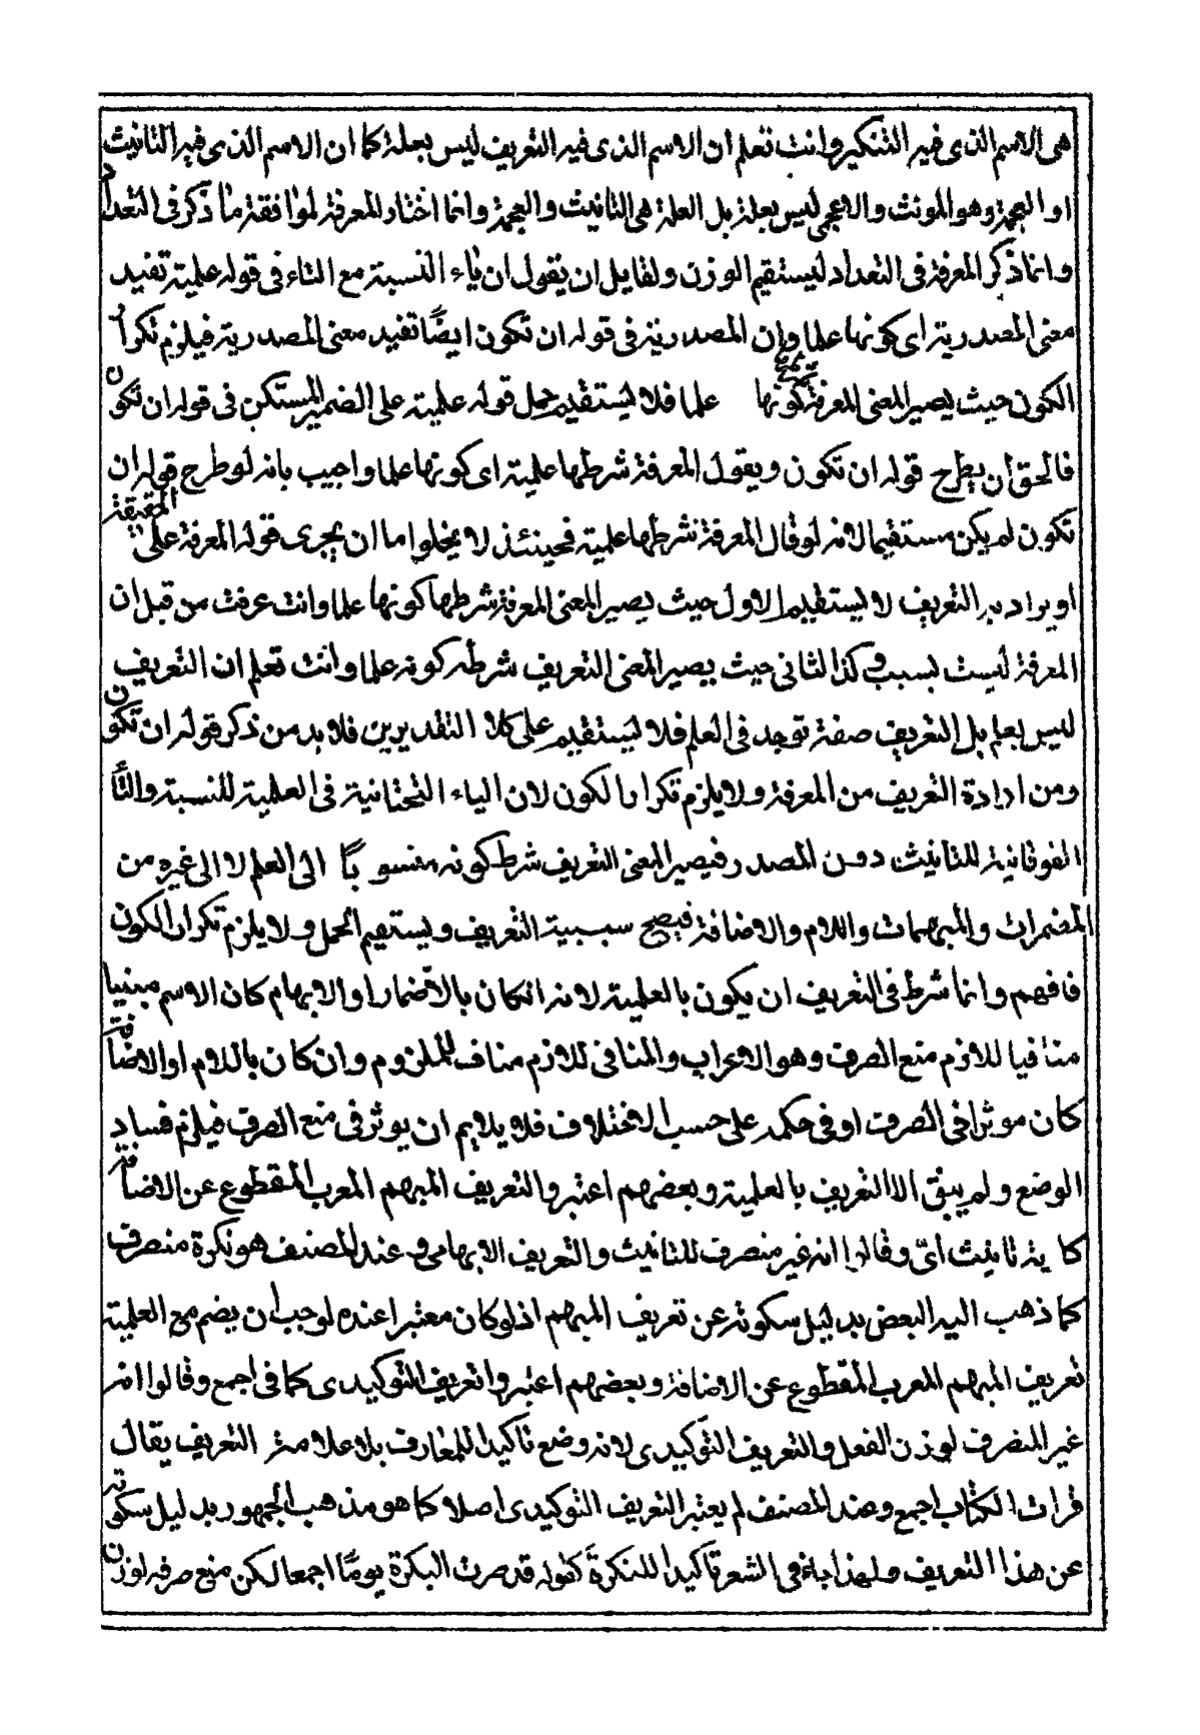 هى الاسم الذى فيه التنكير وانت تعلم ان الاسم الذى فيه التعريف ليس بعلة كما ان الاسم الذى فيه التانيث
او العجمة وهو المونث والاعجمى ليس بعلة بل العلة هى التانيث والعجمة وانما اختار المعرفة لموافقة ما ذكر فى التعداد
وانما ذكر المعرفة فى التعداد ليستقيم الوزن ولقايل ان يقول ان ياء النسبة مع التاء فى قوله علمية تفيد
معنى المصدرية اى كونها علما وان المصدرية فى قوله ان تكون ايضًا تفيد معنى المصدرية فيلزم تكرار
الكون حيث يصير المعنى المعرفة كونها علما فلا يستقيم حمل قوله علمية على الضمير المستكن فى قوله ان تكون
فالحق ان يطرح قوله ان تكون ويقول المعرفة شرطها علمية اى كونها علما واجيب بانه لو طرح قوله ان
تكون لم يكن مستقيما لانه لو قال المعرفة شرطها علمية فحينئذ لا يخلوا ما ان يجرى قوله المعرفة على الحقيقة
او يراد به التعريف لا يستقيم الاول حيث يصير المعنى المعرفة شرطها كونها علما وانت عرفت من قبل ان
المعرفة ليست بسبب وكذا الثانى حيث يصير المعنى التعريف شرطه كونه علما وانت تعلم ان التعريف
ليس بعلم بل التعريف صفة توجد فى العلم فلا يستقيم على كلا التقديرين فلا بد من ذكر قوله ان تكون
ومن ارادة التعريف من المعرفة ولا يلزم تكرار الكون لان الياء التحتانية فى العلمية للنسبة والتا
الفوقانية للتانيث دون المصدر فيصير المعنى التعريف شرط كونه منسوبًا الى العلم لا الى غيره من
المضمرات والمبهمات واللام والاضافة فيصح سببية التعريف ويستقيم الحمل ولا يلزم تكرار الكون
فافهم وانما شرط فى التعريف ان يكون بالعلمية لانه انكان بالاضمار او الابهام كان الاسم مبنيا
منافيا للازم منع الصرف وهو الاعراب والمنافى للازم مناف للملزوم وان كان باللام او الاضافة
كان موثرا فى الصرف او فى حكمه على حسب الاختلاف فلا يلايم ان يوثر فى منع الصرف فيلزم فساد
الوضع ولم يبق الا التعريف بالعلمية وبعضهم اعتبروا التعريف المبهم المعرب المقطوع عن الاضافة
كاية تانيث اىّ وقالوا انه غير منصرف للتانيث والتعريف الابهامى وعند المصنف هو نكرة منصرف
كما ذهب اليه البعض بدليل سكوته عن تعريف المبهم اذ لو كان معتبرا عنده لوجب ان يضم مع العلمية
تعريف المبهم المعرب المقطوع عن الاضافة وبعضهم اعتبروا تعريف التوكيدى كما فى اجمع وقالوا انه
غير المنصرف لوزن الفعل والتعريف التوكيدى لانه وضع تاكيدا للمعارف بلا علامة التعريف يقال
قرات الكتاب اجمع وعند المصنف لم يعتبر التعريف التوكيدى اصلا كما هو مذهب الجمهور بدليل سكوته
عن هذا التعريف ولهذا جاء فى الشعر تاكيدا للنكرة كقوله قد صرت البكرة يومًا اجمعا لكن منع صرفه لوزن